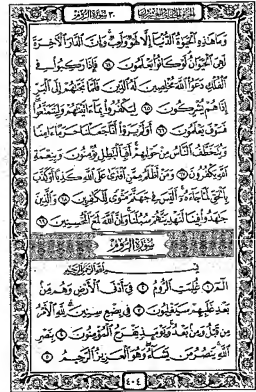 ٣٠ سورة الروم
وَمَا هَٰذِهِ ٱلْحَيَوٰةُ ٱلدُّنْيَآ إِلَّا لَهْوٌ وَلَعِبٌ وَإِنَّ ٱلدَّارَ ٱلْءَاخِرَةَ
لَهِىَ ٱلْحَيَوَانُ لَوْ كَانُوا۟ يَعْلَمُونَ ٦٤ فَإِذَا رَكِبُوا۟ فِى
ٱلْفُلْكِ دَعَوُا۟ ٱللَّهَ مُخْلِصِينَ لَهُ ٱلدِّينَ فَلَمَّا نَجَّىٰهُمْ إِلَى ٱلْبَرِّ
إِذَا هُمْ يُشْرِكُونَ ٦٥ لِيَكْفُرُوا۟ بِمَآ ءَاتَيْنَٰهُمْ وَلِيَتَمَتَّعُوا۟
فَسَوْفَ يَعْلَمُونَ ٦٦ أَوَلَمْ يَرَوْا۟ أَنَّا جَعَلْنَا حَرَمًا ءَامِنًا
وَيُتَخَطَّفُ ٱلنَّاسُ مِنْ حَوْلِهِمْ أَفَبِٱلْبَٰطِلِ يُؤْمِنُونَ وَبِنِعْمَةِ
ٱللَّهِ يَكْفُرُونَ ٦٧ وَمَنْ أَظْلَمُ مِمَّنِ ٱفْتَرَىٰ عَلَى ٱللَّهِ كَذِبًا أَوْ كَذَّبَ
بِٱلْحَقِّ لَمَّا جَآءَهُۥٓ أَلَيْسَ فِى جَهَنَّمَ مَثْوًى لِّلْكَٰفِرِينَ ٦٨ وَٱلَّذِينَ
جَٰهَدُوا۟ فِينَا لَنَهْدِيَنَّهُمْ سُبُلَنَا وَإِنَّ ٱللَّهَ لَمَعَ ٱلْمُحْسِنِينَ ٦٩
سُورَةُ الرُّومِ
بِسْمِ ٱللَّهِ ٱلرَّحْمَٰنِ ٱلرَّحِيمِ
الٓمٓ ١ غُلِبَتِ ٱلرُّومُ ٢ فِىٓ أَدْنَى ٱلْأَرْضِ وَهُم مِّنۢ
بَعْدِ غَلَبِهِمْ سَيَغْلِبُونَ ٣ فِى بِضْعِ سِنِينَ لِلَّهِ ٱلْأَمْرُ
مِن قَبْلُ وَمِنۢ بَعْدُ وَيَوْمَئِذٍ يَفْرَحُ ٱلْمُؤْمِنُونَ ٤ بِنَصْرِ
ٱللَّهِ يَنصُرُ مَن يَشَآءُ وَهُوَ ٱلْعَزِيزُ ٱلرَّحِيمُ ٥
٤٠٤